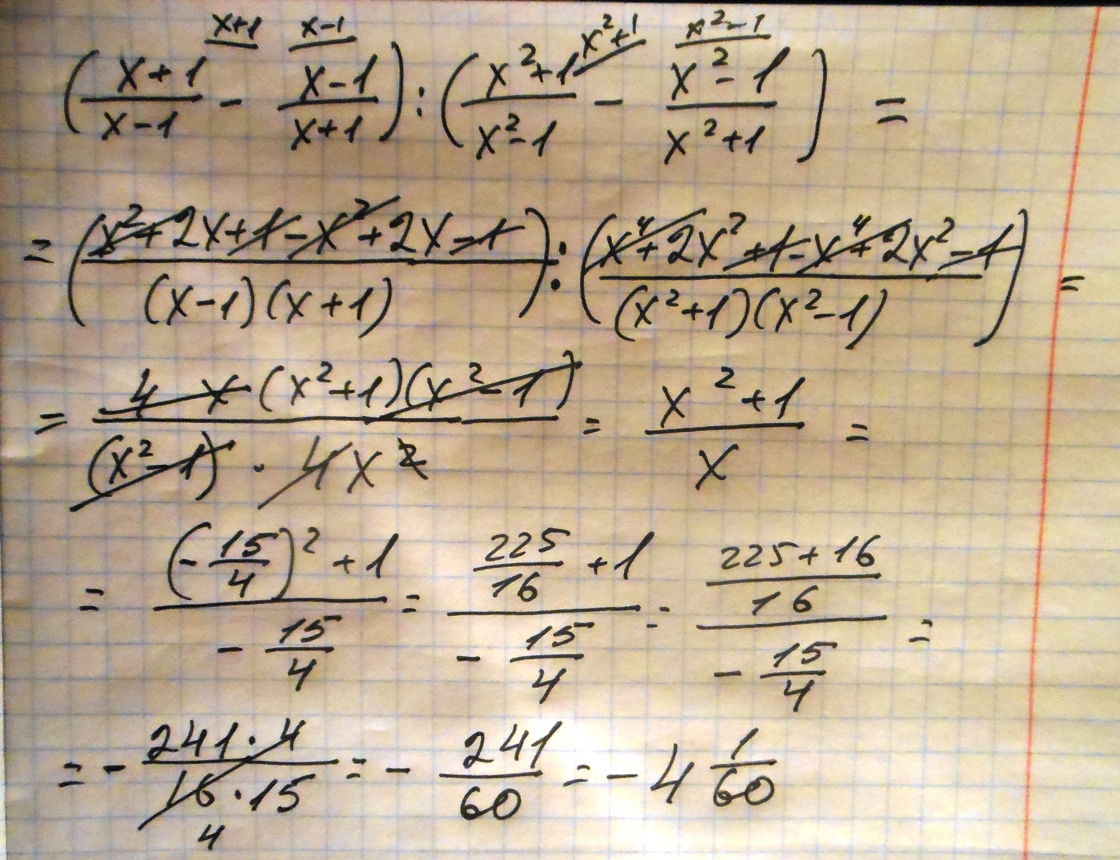 (x+1/x-1 ^x+1 - x-1/x+1 ^x-1) : (x²+1/x²-1 ^x²+1 - x²-1/x²+1 ^x²-1) =
= (x²+2x+1-x²+2x-1/(x-1)(x+1)) : (x⁴+2x²+1-x⁴+2x²-1/(x²+1)(x²-1)) =
= 4x(x²+1)(x²-1)/(x²-1)·4x² = x²+1/x =
= (-15/4)²+1/-15/4 = 225/16+1/-15/4 = 225+16/16/-15/4 =
= - 241·4/16·15 4 = - 241/60 = -4 1/60